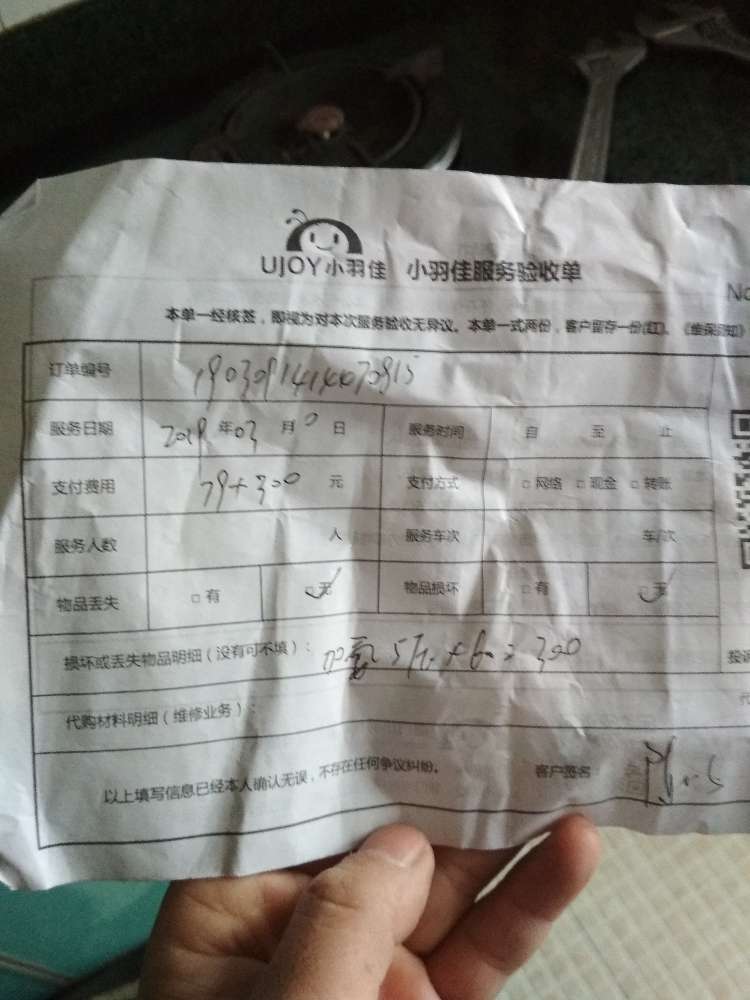 UJOY小羽佳 小羽佳服务验收单
No
本单一经核签，即视为对本次服务验收无异议。本单一式两份，客户留存一份(红)。《维保须知》
订单编号
服务日期 2019 年 03 月 日 服务时间 自 至 止
支付费用 79+300 元 支付方式 □ 网络 □ 现金 □ 转账
服务人数 人 服务车次 车/次
物品丢失 □ 有 无 物品损坏 □ 有 无
损坏或丢失物品明细（没有可不填）： 加氟 5 300
投诉
代购材料明细（维修业务）：
代
以上填写信息已经本人确认无误，不存在任何争议纠纷。 客户签名